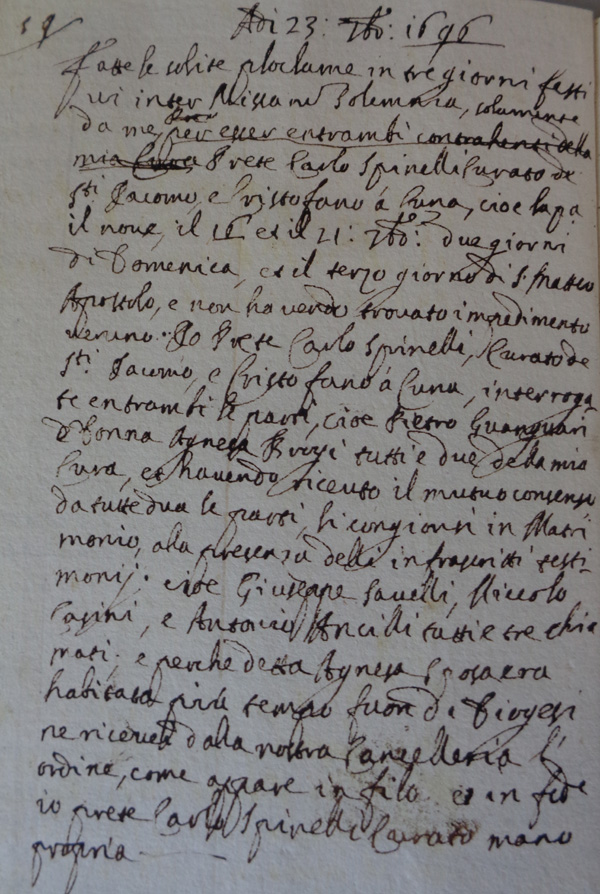 59
Adi 23: 7bre: 1696
Fatte le solite proclame in tre giorni festi
vi inter Missarum Solemnia, solamente
da me, per esser entrambi contrahenti della
mia Cura Prete Carlo Spinelli Curato de
Sti. Jacomo, e Cristofano á Cuna, cioe la pa
il nove, il 16 et il 21: 7bre: due giorni
di Domenica, et il terzo giorno di S. Matteo
Apostolo, e non havendo trovato impedimento
veruno. Io Prete Carlo Spinelli, Curato de
Sti. Jacomo, e Cristofano á Cuna, interroga
te entrambi le parti, cioe Pietro Guanguari
e Donna Agnesa tutti e due della mia
Cura, et havendo riceuto il mutuo consenso
da tutte dua le parti, li congionsi in Matri
monio, alla presenza delli infrascritti testi-
monij. cioe Giuseppe Savelli, Niccolo
Casini, e Antonio Ancilli tutti e tre chia
mati; e perche detta Agnesa Sposa era
habitata più tempo fuori di Diogesi
ne ricevei dalla nostra Cancelleria l'
ordine, come appare in filo et in fide
io prete Carlo Spinelli Curato mano
propria